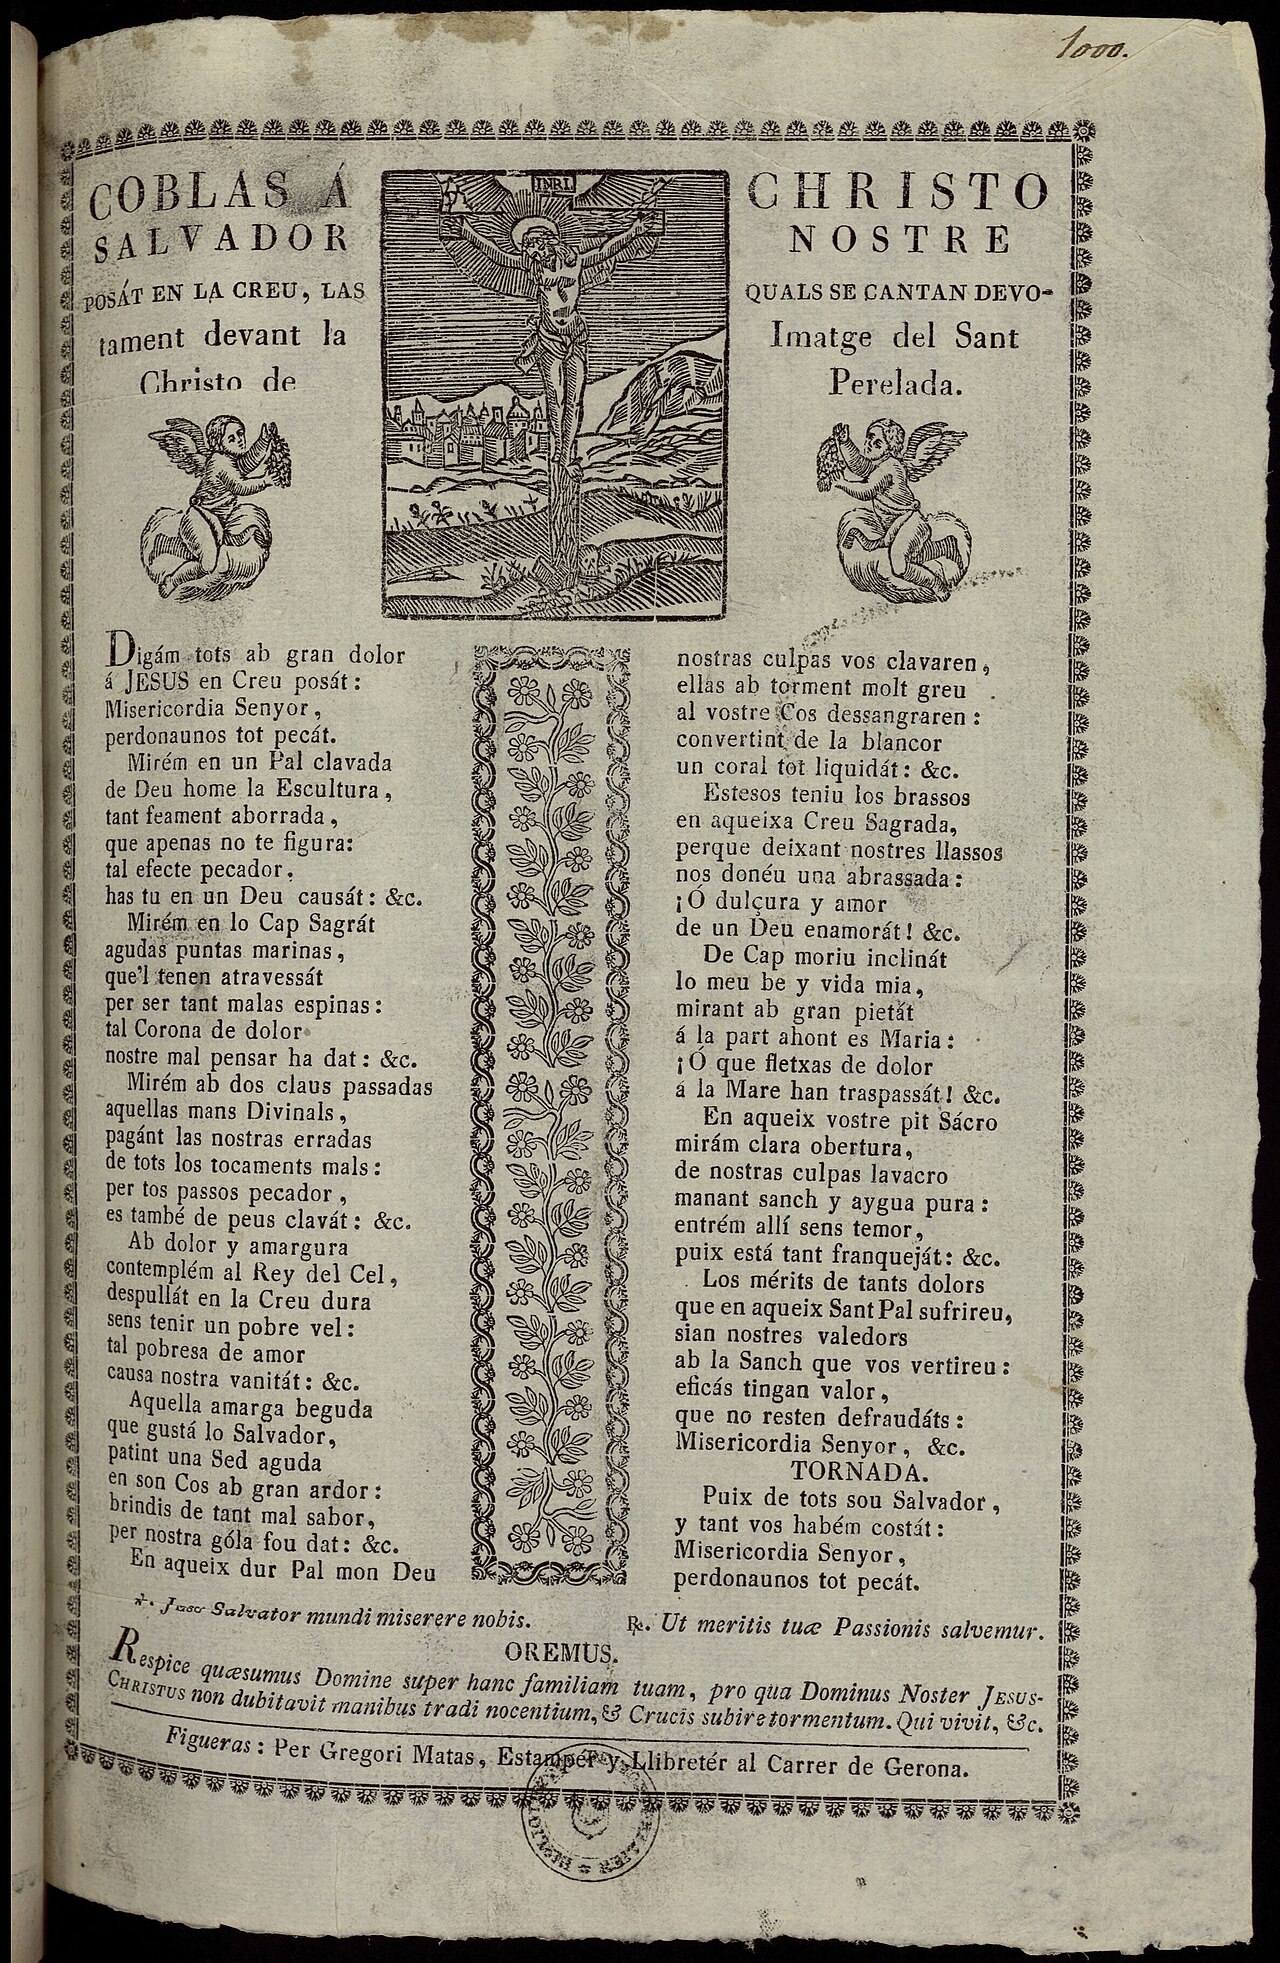 1000.
COBLAS Á CHRISTO
SALVADOR NOSTRE
POSÁT EN LA CREU, LAS QUALS SE CANTAN DEVO-
tament devant la Imatge del Sant
Christo de Perelada.
INRI
Digám tots ab gran dolor
á JESUS en Creu posát:
Misericordia Senyor,
perdonaunos tot pecát.
Mirém en un Pal clavada
de Deu home la Escultura,
tant feament aborrada,
que apenas no te figura:
tal efecte pecador.
has tu en un Deu causát: &c.
Mirém en lo Cap Sagrát
agudas puntas marinas,
que'l tenen atravessát
per ser tant malas espinas:
tal Corona de dolor
nostre mal pensar ha dat: &c.
Mirém ab dos claus passadas
aquellas mans Divinals,
pagánt las nostras erradas
de tots los tocaments mals:
per tos passos pecador,
es també de peus clavát: &c.
Ab dolor y amargura
contemplém al Rey del Cel,
despullát en la Creu dura
sens tenir un pobre vel:
tal pobresa de amor
causa nostra vanitát: &c.
Aquella amarga beguda
que gustá lo Salvador,
patint una Sed aguda
en son Cos ab gran ardor:
brindis de tant mal sabor,
per nostra góla fou dat: &c.
En aqueix dur Pal mon Deu
nostras culpas vos clavaren,
ellas ab torment molt greu
al vostre Cos dessangraren:
convertint de la blancor
un coral tot liquidát: &c.
Estesos teniu los brassos
en aqueixa Creu Sagrada,
perque deixant nostres llassos
nos donéu una abrassada:
¡Ó dulçura y amor
de un Deu enamorát! &c.
De Cap moriu inclinát
lo meu be y vida mia,
mirant ab gran pietát
á la part ahont es Maria:
¡Ó que fletxas de dolor
á la Mare han traspassát! &c.
En aqueix vostre pit Sácro
mirám clara obertura,
de nostras culpas lavacro
manant sanch y aygua pura:
entrém allí sens temor,
puix está tant franqueját: &c.
Los mérits de tants dolors
que en aqueix Sant Pal sufrireu,
sian nostres valedors
ab la Sanch que vos vertireu:
eficás tingan valor,
que no resten defraudáts:
Misericordia Senyor, &c.
TORNADA.
Puix de tots sou Salvador,
y tant vos habém costát:
Misericordia Senyor,
perdonaunos tot pecát.
℣. Jesu Salvator mundi miserere nobis. ℞. Ut meritis tuæ Passionis salvemur.
OREMUS.
Respice quæsumus Domine super hanc familiam tuam, pro qua Dominus Noster JESUS-
CHRISTUS non dubitavit manibus tradi nocentium, & Crucis subire tormentum. Qui vivit, &c.
Figueras: Per Gregori Matas, Estampér y Llibretér al Carrer de Gerona.